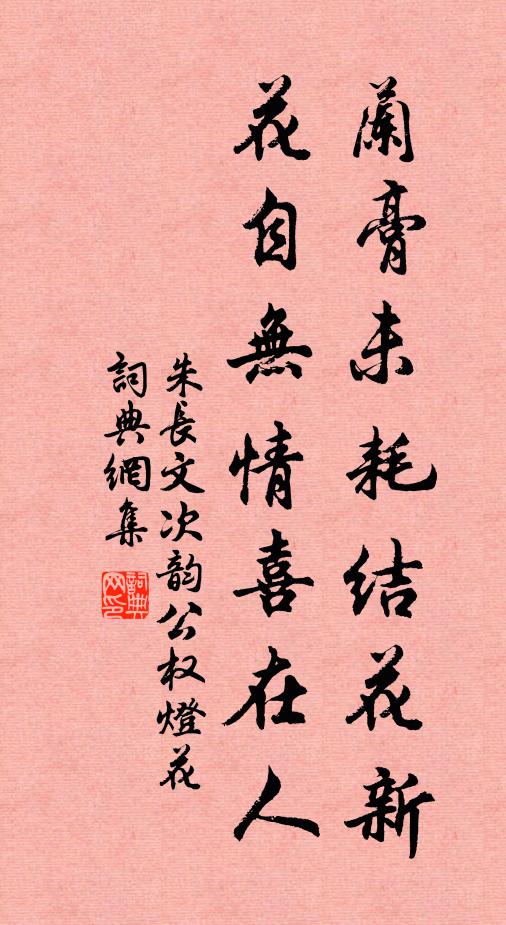 蘭膏未耗結花新
花自無情喜在人
朱長文次韵公权燈花
詞典網集
詞典网印